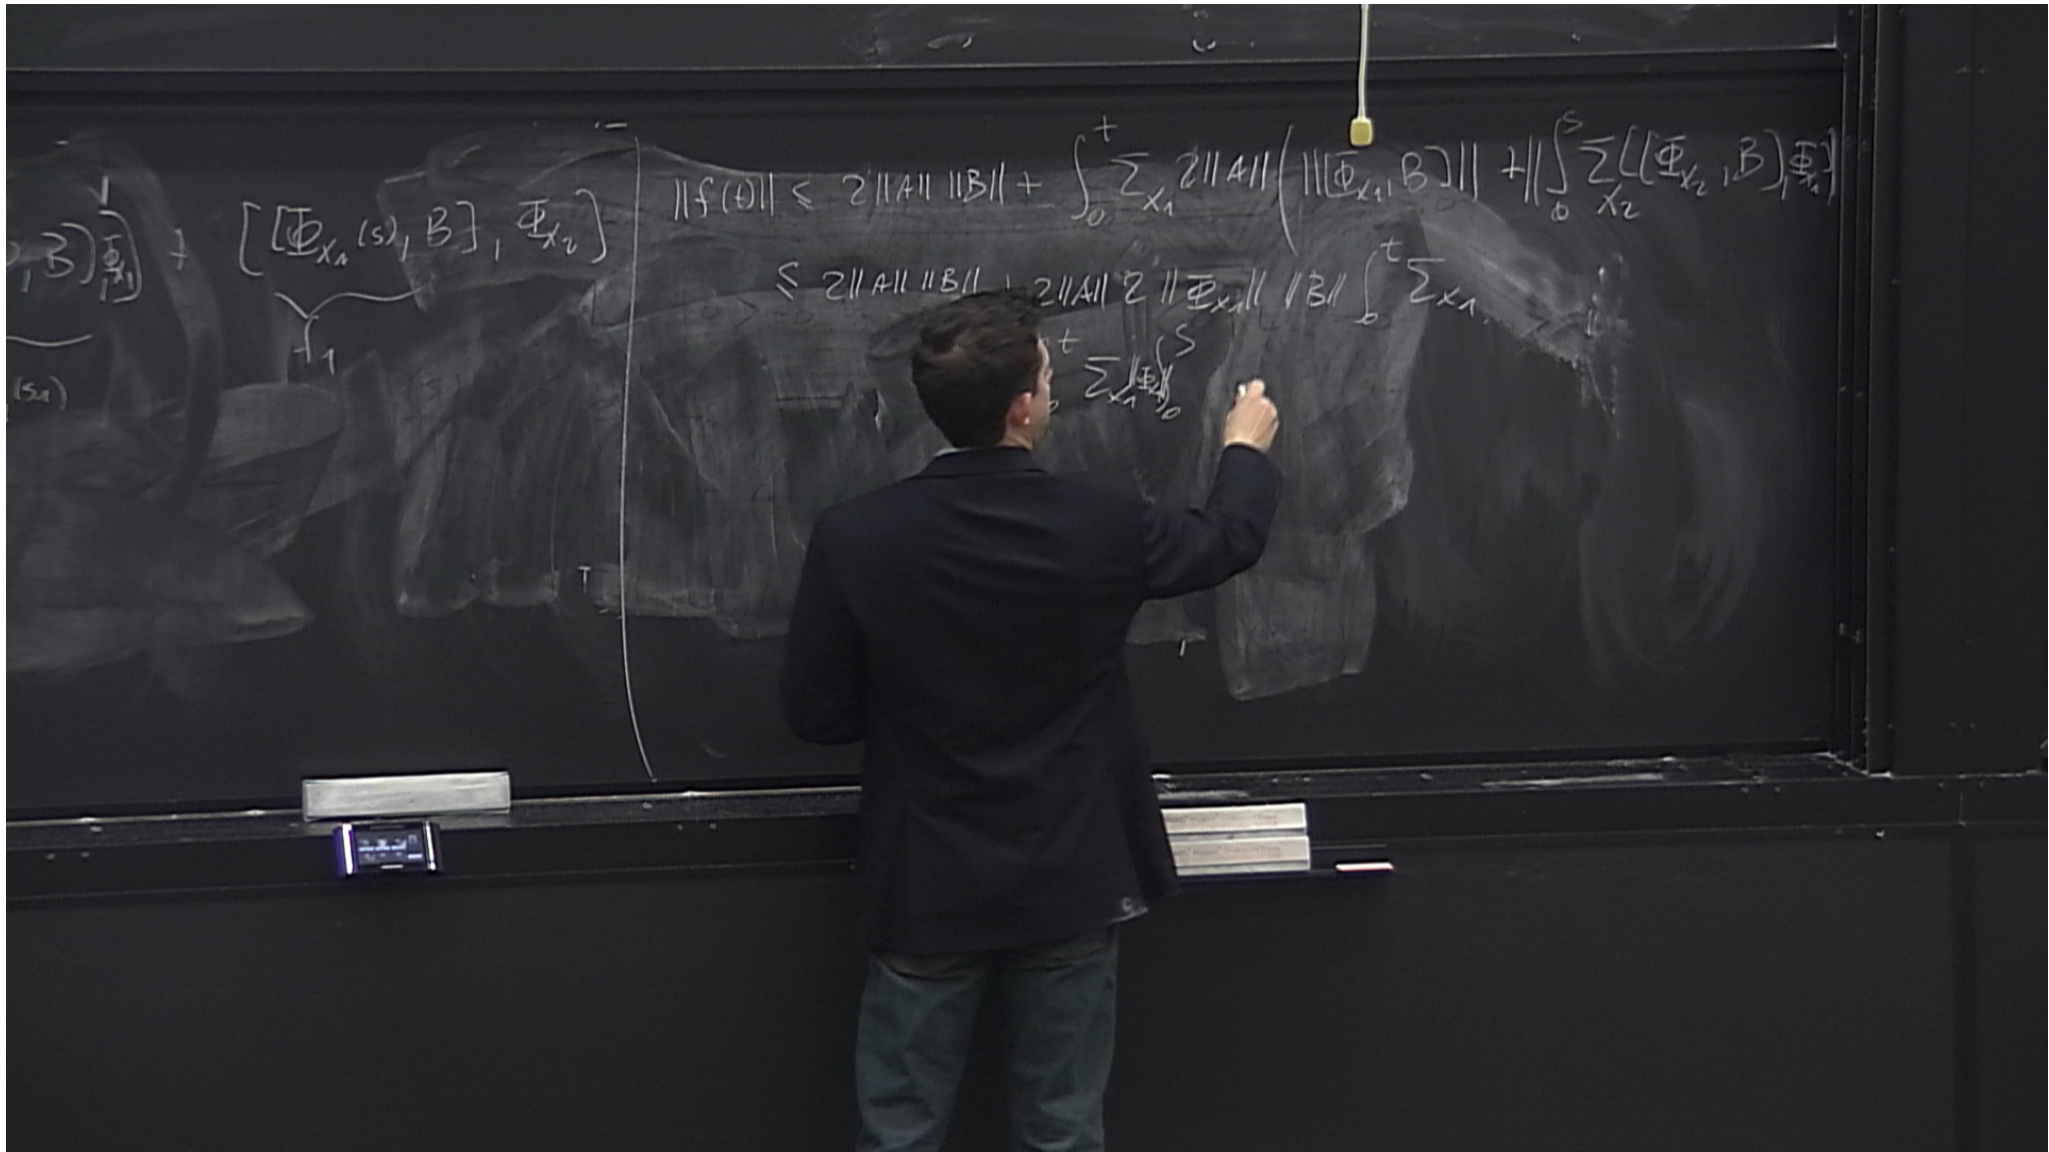 , B), Φ_{X_1}] + [[Φ_{X_1}(s), B], Φ_{X_2}]
f_1
(s_1)
||f(t)|| ≤ 2||A|| ||B|| + ∫_0^t Σ_{X_1} 2||A|| ( ||[Φ_{X_1}, B]|| + || ∫_0^s Σ_{X_2} [[Φ_{X_2}, B), Φ_{X_1}]
≤ 2||A|| ||B|| + 2||A|| 2 ||Φ_{X_1}|| ||B|| ∫_0^t Σ_{X_1}
t_0 Σ_{X_1} ||Φ_{X_1}|| ∫_0^s